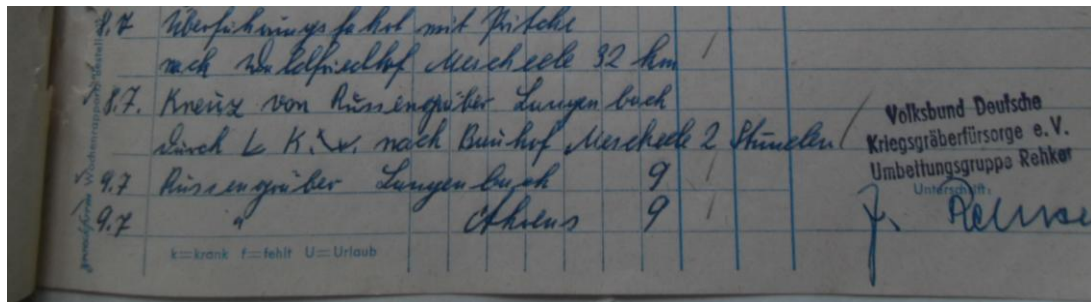 8.7 Überführungsfahrt mit Pritsche
nach Waldfriedhof Meschede 32 km /
8.7. Kreuz von Russengräber Langenbach
durch L.K.W. nach Bauhof Meschede 2 Stunden /
9.7 Russengräber Langenbach 9 /
9.7 " Ahrens 9 /
k=krank f=fehlt U=Urlaub
Wochenrapport
Volksbund Deutsche
Kriegsgräberfürsorge e.V.
Umbettungsgruppe Rehker
Unterschrift: